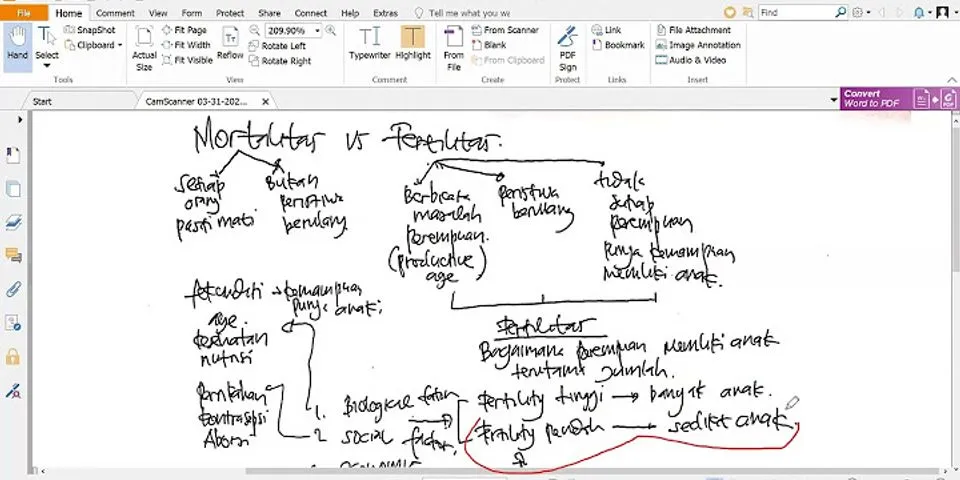 File Home Comment View Form Protect Share Connect Help Extras Tell me what you wa Find
Hand
Select
SnapShot
Clipboard
Actual Size
Fit Page
Fit Width
Fit Visible
Reflow
209.90%
Rotate Left
Rotate Right
Typewriter
Highlight
From File
From Scanner
Blank
From Clipboard
PDF Sign
Link
Bookmark
File Attachment
Image Annotation
Audio & Video
Tools View Comment Create Protect Links Insert
Start CamScanner 03-31-202...
Convert
Word to PDF
Mortalitas vs Fertilitas.
Setiap
orang
pasti mati
Bukan
peristiwa
berulang.
Berbicara
masalah
perempuan.
(productive
age)
peristiwa
berulang
tidak
setiap
perempuan
punya kemampuan
memiliki anak.
fekunditi → kemampuan
punya anak
age.
kesehatan
nutrisi
Fertilitas
Bagaimana perempuan memiliki anak
terutama jumlah.
pernikahan
kontrasepsi
Aborsi
1. Biological factor
2 social factor.
Fertility tinggi → banyak anak.
Fertility rendah → sedikit anak.